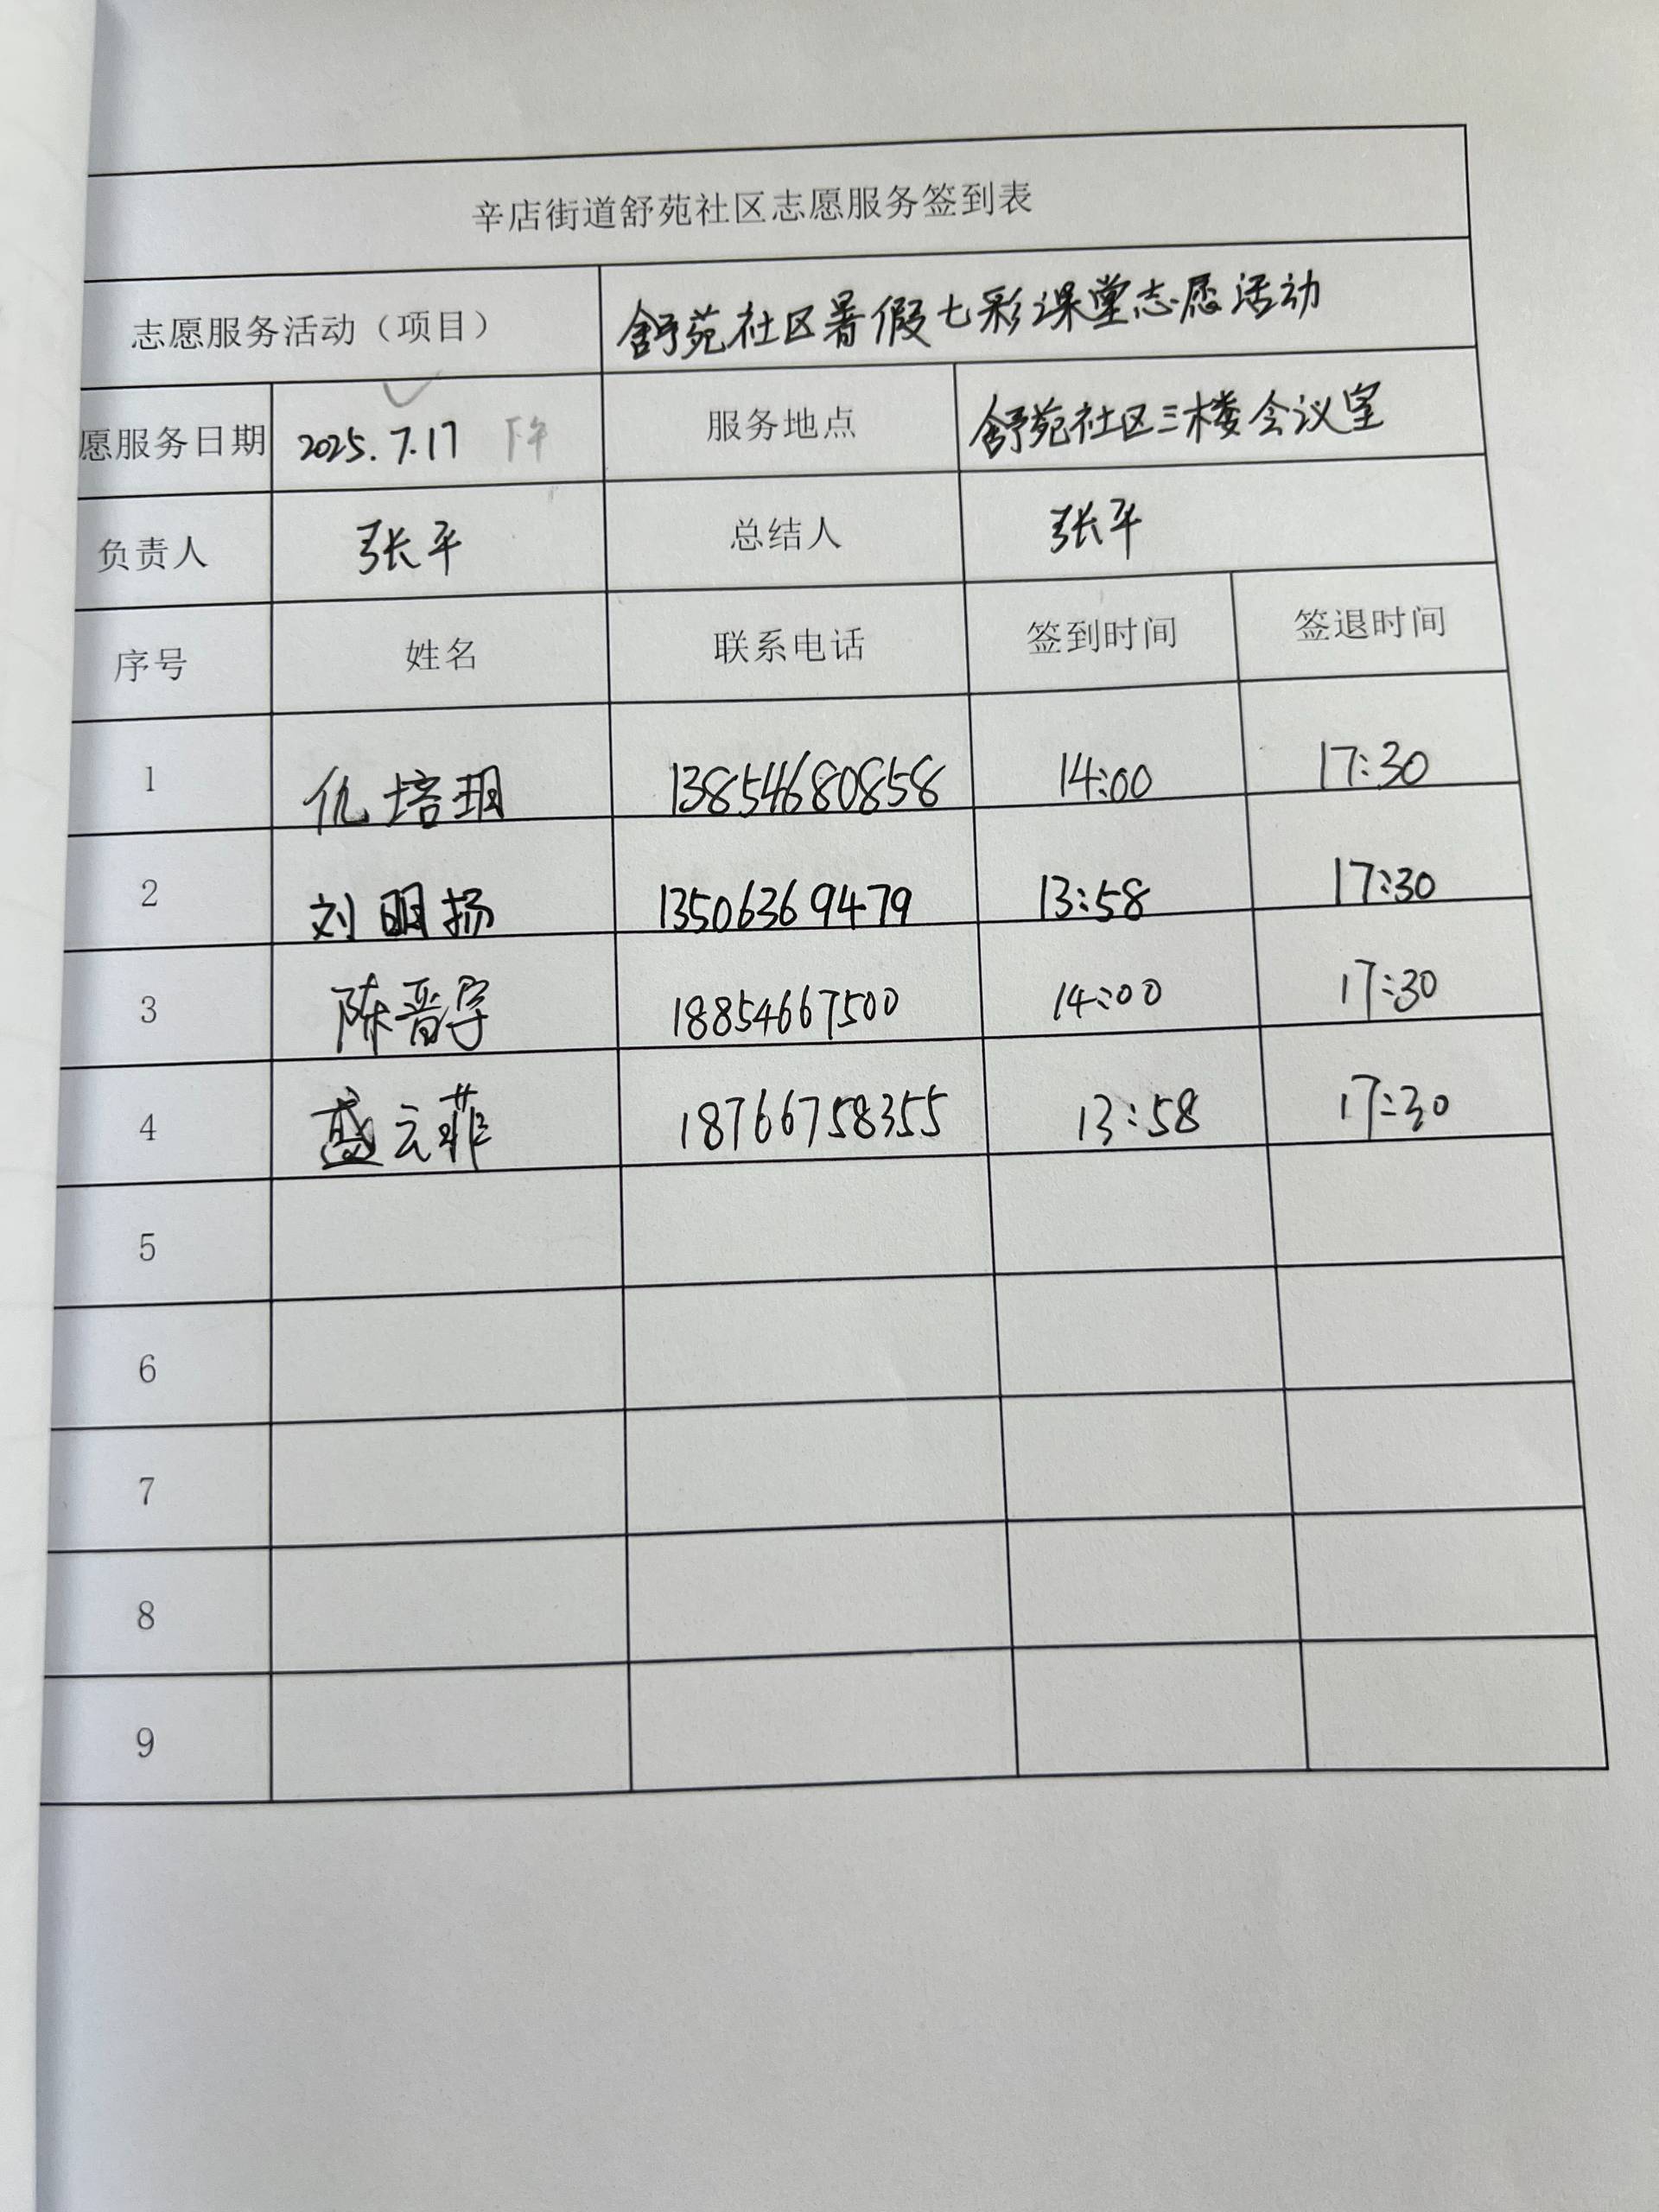 辛店街道舒苑社区志愿服务签到表
志愿服务活动（项目） 舒苑社区暑假七彩课堂志愿活动
愿服务日期 2025.7.17 下午 服务地点 舒苑社区三楼会议室
负责人 张平 总结人 张平
序号 姓名 联系电话 签到时间 签退时间
1 仇培玥 13854680858 14:00 17:30
2 刘明扬 13506369479 13:58 17:30
3 陈晋宇 18854667500 14:00 17:30
4 盛云菲 18766758355 13:58 17:30
5
6
7
8
9